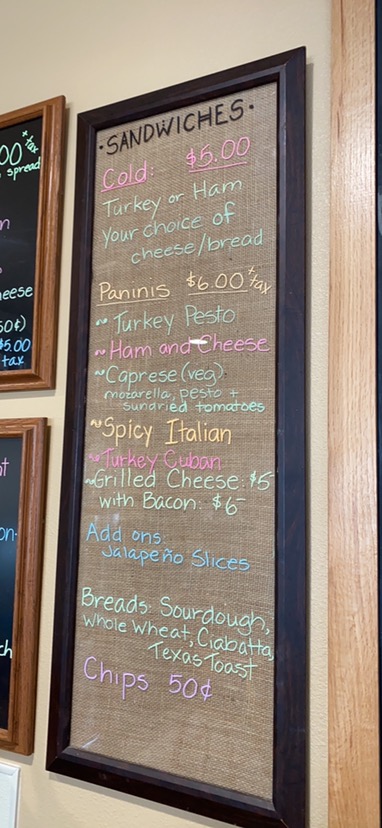 ·SANDWICHES·
Cold: $5.00
Turkey or Ham
Your choice of
cheese/bread
Paninis $6.00 + tax
~ Turkey Pesto
~ Ham and Cheese
~ Caprese (veg)
mozarella, pesto +
sundried tomatoes
~ Spicy Italian
~ Turkey Cuban
~ Grilled Cheese: $5
with Bacon: $6-
Add ons:
Jalapeño Slices
Breads: Sourdough,
Whole Wheat, Ciabatta,
Texas Toast
Chips 50¢
00 + tax
spread
eese
50¢)
$5.00
tax